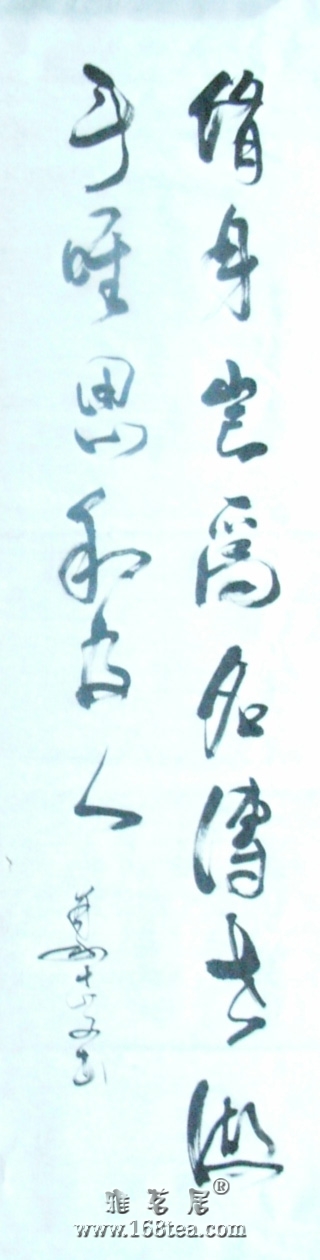 脩身岂為名傳世做
事唯思利及人
雅茗居®
www.168tea.com